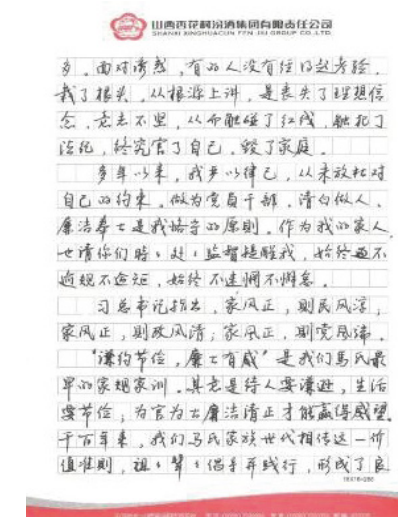 山西杏花村汾酒集团有限责任公司
SHANXI XINGHUACUN FEN JIU GROUP CO.,LTD.
多。面对诱惑，有的人没有经得起考验，
栽了跟头。从根源上讲，是丧失了理想信
念，意志不坚，从而触碰了红线，触犯了
法纪，终究害了自己，毁了家庭。
多年以来，我严以律己，从未放松对
自己的约束。做为党员干部，清白做人、
廉洁奉士是我恪守的原则。作为我的家人，
也请你们时时处处监督提醒我，始终做到不
逾规不逾矩，始终不迷惘不懈怠。
习总书记指出，家风正，则民风淳，
家风正，则政风清；家风正，则党风端。
“谦约节俭，廉士有威”是我们马氏最
早的家规家训。其意是待人要谦逊，生活
要节俭，为官为士廉洁清正才能赢得威望。
千百年来，我们马氏家族世代相传这一价
值准则，祖祖辈辈倡导并践行，形成了良